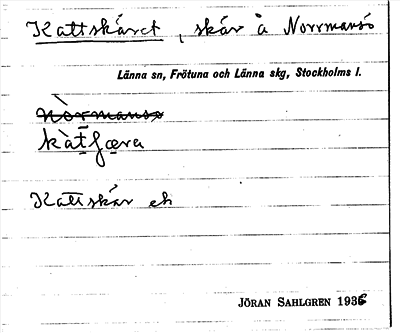 Kattskäret, skär å Norrmansö
Länna sn, Frötuna och Länna skg, Stockholms l.
Kattskär ek
JÖRAN SAHLGREN 1936